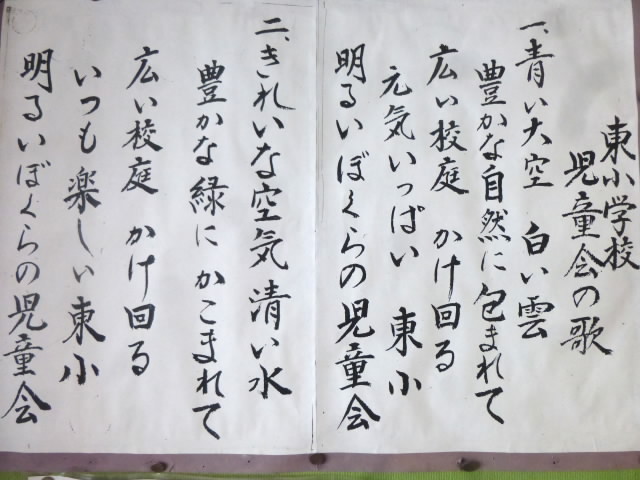 東小学校
児童会の歌
一、青い大空 白い雲
豊かな自然に包まれて
広い校庭 かけ回る
元気いっぱい 東小
明るいぼくらの児童会
二、きれいな空気 清い水
豊かな緑に かこまれて
広い校庭 かけ回る
いつも楽しい東小
明るいぼくらの児童会